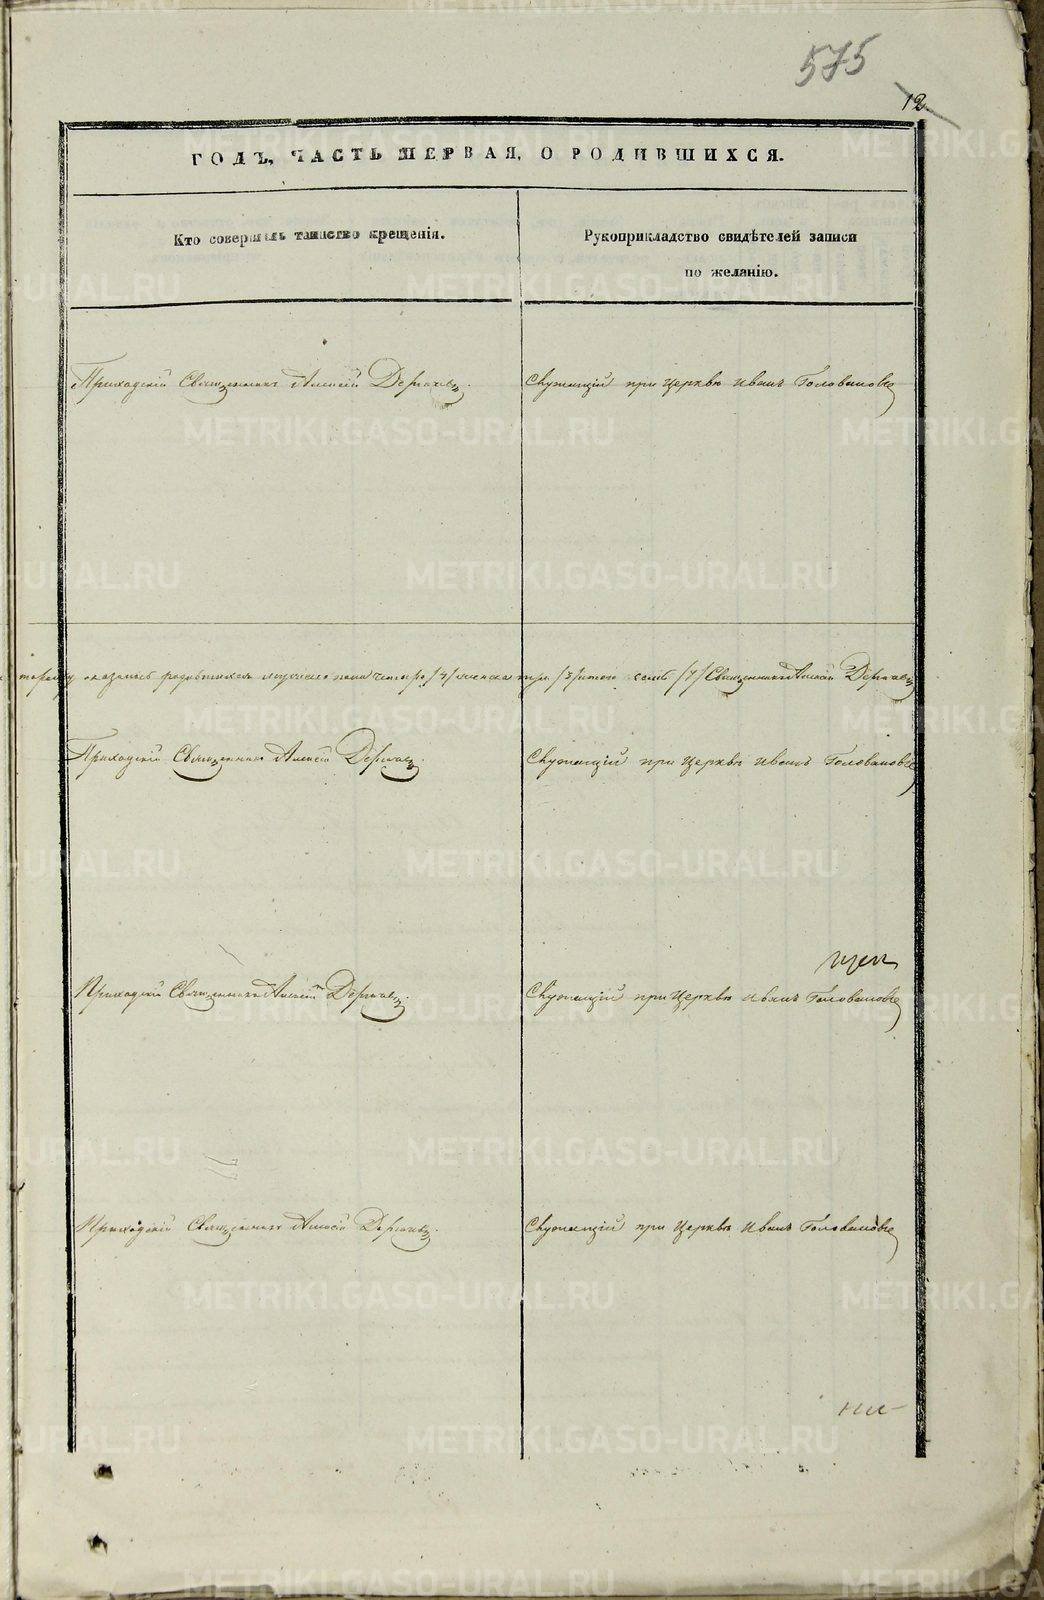 575
12
ГОДЪ, ЧАСТЬ ПЕРВАЯ, О РОДИВШИХСЯ.
Кто совершалъ таинство крещенія.
Рукоприкладство свидѣтелей записи
по желанію.
Приходскій Священникъ Алексѣй
Служащій при Церквѣ Иванъ Головановъ
оказалось родившихся мужеска пола четыре /4/ женска три /3/ итого семь /7/ Священникъ Алексѣй
Приходскій Священникъ Алексѣй
Служащій при Церквѣ Иванъ Головановъ
Приходскій Священникъ Алексѣй
Служащій при Церквѣ Иванъ Головановъ
Приходскій Священникъ Алексѣй
Служащій при Церквѣ Иванъ Головановъ
METRIKI.GASO-URAL.RU